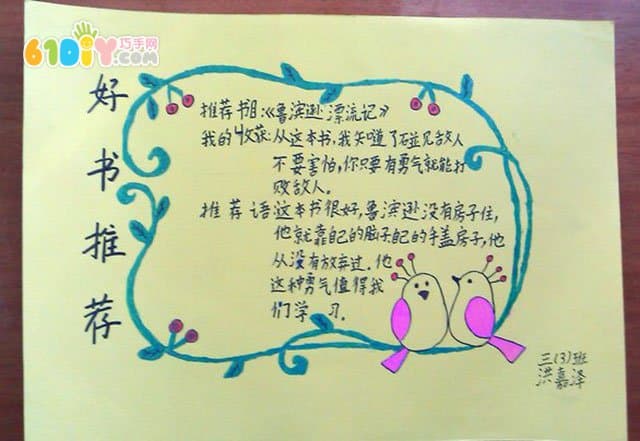 61DIY巧手网
.com
好书推荐
推荐书目:《鲁滨逊漂流记》
我的收获:从这本书,我知道了碰见敌人
不要害怕,你只要有勇气就能打
败敌人。
推荐语:这本书很好,鲁滨逊没有房子住,
他就靠自己的脑子自己的手盖房子,他
从没有放弃过.他
这种勇气值得我
们学习.
三(3)班
洪嘉泽